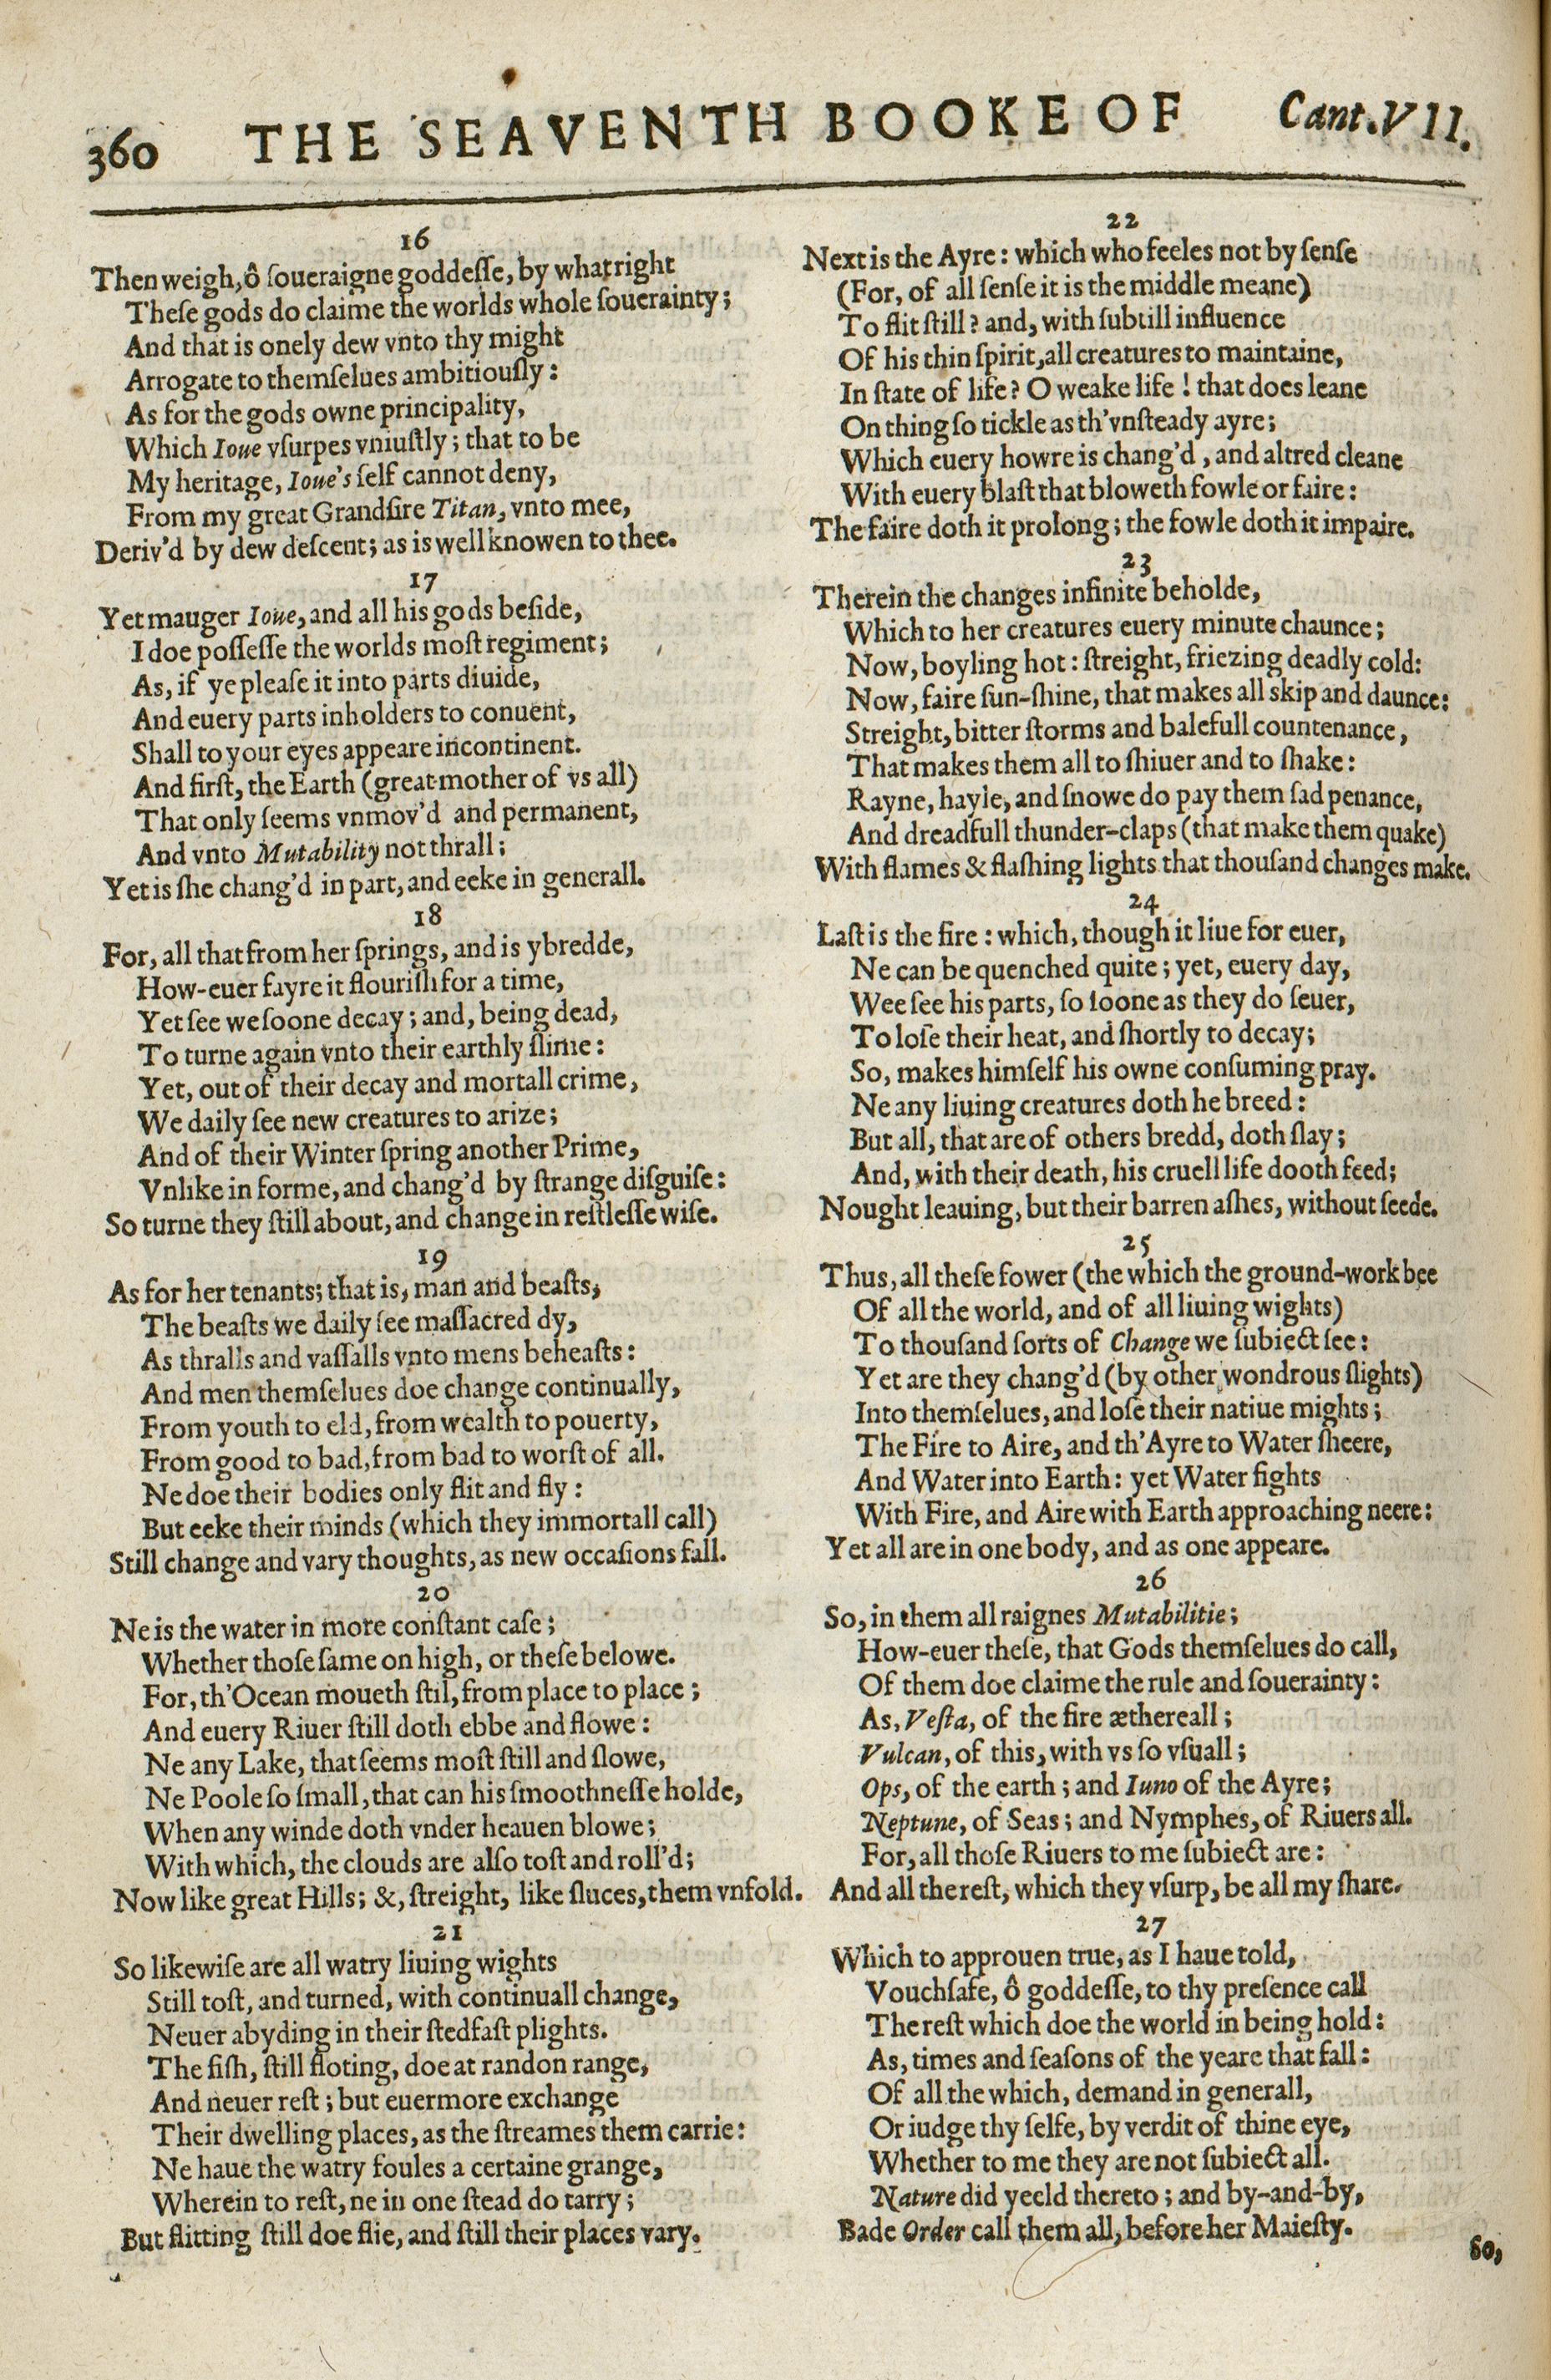 360 THE SEAVENTH BOOKE OF Cant. VII.
16
Then weigh, ô ſoueraigne goddeſſe, by what right
Theſe gods do claime the worlds whole ſouerainty;
And that is onely dew vnto thy might
Arrogate to themſelues ambitiouſly:
As for the gods owne principality,
Which Ioue vſurpes vniuſtly; that to be
My heritage, Ioue's ſelf cannot deny,
From my great Grandſire Titan, vnto mee,
Deriv'd by dew deſcent; as is well knowen to thee.
17
Yet mauger Ioue, and all his gods beſide,
I doe poſſeſſe the worlds moſt regiment;
As, if ye pleaſe it into parts diuide,
And euery parts inholders to conuent,
Shall to your eyes appeare incontinent.
And firſt, the Earth (great mother of vs all)
That only ſeems vnmov'd and permanent,
And vnto Mutability not thrall;
Yet is ſhe chang'd in part, and eeke in generall.
18
For, all that from her ſprings, and is ybredde,
How-euer fayre it flouriſh for a time,
Yet ſee we ſoone decay; and, being dead,
To turne again vnto their earthly ſlime:
Yet, out of their decay and mortall crime,
We daily ſee new creatures to arize;
And of their Winter ſpring another Prime,
Vnlike in forme, and chang'd by ſtrange diſguiſe:
So turne they ſtill about, and change in reſtleſſe wiſe.
19
As for her tenants; that is, man and beaſts,
The beaſts we daily ſee maſſacred dy,
As thralls and vaſſalls vnto mens beheaſts:
And men themſelues doe change continually,
From youth to eld, from wealth to pouerty,
From good to bad, from bad to worſt of all.
Ne doe their bodies only flit and fly:
But eeke their minds (which they immortall call)
Still change and vary thoughts, as new occaſions fall.
20
Ne is the water in more conſtant caſe;
Whether thoſe ſame on high, or theſe belowe.
For, th'Ocean moueth ſtil, from place to place;
And euery Riuer ſtill doth ebbe and flowe:
Ne any Lake, that ſeems moſt ſtill and ſlowe,
Ne Poole ſo ſmall, that can his ſmoothneſſe holde,
When any winde doth vnder heauen blowe;
With which, the clouds are alſo toſt and roll'd;
Now like great Hills; &, ſtreight, like ſluces, them vnfold.
21
So likewiſe are all watry liuing wights
Still toſt, and turned, with continuall change,
Neuer abyding in their ſtedfaſt plights.
The fiſh, ſtill floting, doe at randon range,
And neuer reſt; but euermore exchange
Their dwelling places, as the ſtreames them carrie:
Ne haue the watry foules a certaine grange,
Wherein to reſt, ne in one ſtead do tarry;
But flitting ſtill doe flie, and ſtill their places vary.
22
Next is the Ayre: which who feeles not by ſenſe
(For, of all ſenſe it is the middle meane)
To flit ſtill? and, with ſubtill influence
Of his thin ſpirit, all creatures to maintaine,
In ſtate of life? O weake life! that does leane
On thing ſo tickle as th'vnſteady ayre;
Which euery howre is chang'd, and altred cleane
With euery blaſt that bloweth fowle or faire:
The faire doth it prolong; the fowle doth it impaire.
23
Therein the changes infinite beholde,
Which to her creatures euery minute chaunce;
Now, boyling hot: ſtreight, friezing deadly cold:
Now, faire ſun-ſhine, that makes all skip and daunce:
Streight, bitter ſtorms and balefull countenance,
That makes them all to ſhiuer and to ſhake:
Rayne, hayle, and ſnowe do pay them ſad penance,
And dreadfull thunder-claps (that make them quake)
With flames & flaſhing lights that thouſand changes make.
24
Laſt is the fire: which, though it liue for euer,
Ne can be quenched quite; yet, euery day,
Wee ſee his parts, ſo ſoone as they do ſeuer,
To loſe their heat, and ſhortly to decay;
So, makes himſelf his owne conſuming pray.
Ne any liuing creatures doth he breed:
But all, that are of others bredd, doth ſlay;
And, with their death, his cruell life dooth feed;
Nought leauing, but their barren aſhes, without ſeede.
25
Thus, all theſe fower (the which the ground-work bee
Of all the world, and of all liuing wights)
To thouſand ſorts of Change we ſubiect ſee:
Yet are they chang'd (by other wondrous ſlights)
Into themſelues, and loſe their natiue mights;
The Fire to Aire, and th'Ayre to Water ſheere,
And Water into Earth: yet Water fights
With Fire, and Aire with Earth approaching neere:
Yet all are in one body, and as one appeare.
26
So, in them all raignes Mutabilitie;
How-euer theſe, that Gods themſelues do call,
Of them doe claime the rule and ſouerainty:
As, Veſta, of the fire æthereall;
Vulcan, of this, with vs ſo vſuall;
Ops, of the earth; and Iuno of the Ayre;
Neptune, of Seas; and Nymphes, of Riuers all.
For, all thoſe Riuers to me ſubiect are:
And all the reſt, which they vſurp, be all my ſhare.
27
Which to approuen true, as I haue told,
Vouchſafe, ô goddeſſe, to thy preſence call
The reſt which doe the world in being hold:
As, times and ſeaſons of the yeare that fall:
Of all the which, demand in generall,
Or iudge thy ſelfe, by verdit of thine eye,
Whether to me they are not ſubiect all.
Nature did yeeld thereto; and by-and-by,
Bade Order call them all, before her Maieſty.
So,